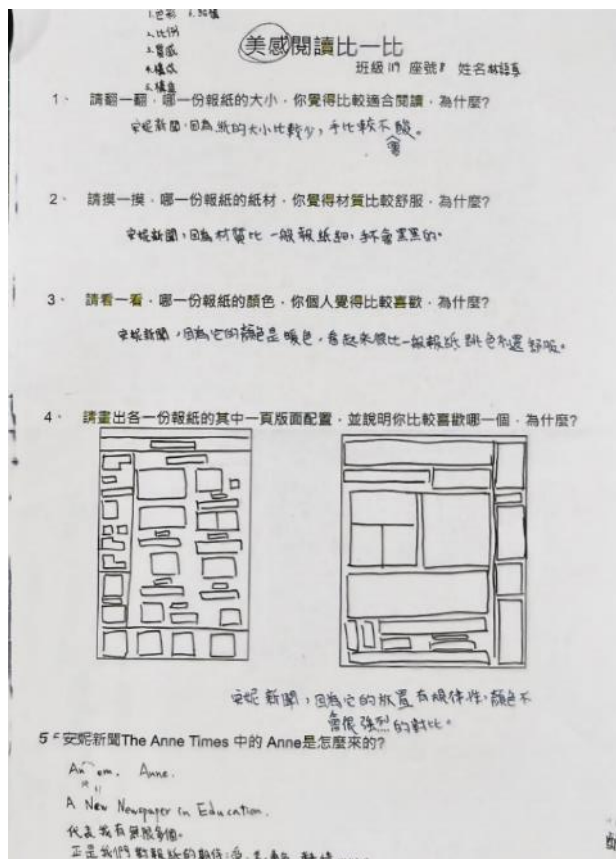 1.色彩 6.結構
2.比例
3.質感
4.構成
5.構造
美感閱讀比一比
班級 119 座號 8 姓名 林語
1、 請翻一翻,哪一份報紙的大小,你覺得比較適合閱讀,為什麼?
安妮新聞,因為紙的大小比較小,手比較不會酸。
2、 請摸一摸,哪一份報紙的紙材,你覺得材質比較舒服,為什麼?
安妮新聞,因為材質比一般報紙細,手不會黑黑的。
3、 請看一看,哪一份報紙的顏色,你個人覺得比較喜歡,為什麼?
安妮新聞,因為它的顏色是暖色,看起來很比一般報紙跳色來還舒服。
4、 請畫出各一份報紙的其中一頁版面配置,並說明你比較喜歡哪一個,為什麼?
安妮新聞,因為它的放置有規律性,顏色不
會很強烈的對比。
5、安妮新聞The Anne Times 中的 Anne是怎麼來的?
An om. Anne.
A New Newspaper in Education.
代表我有無限多個。
正是我們對報紙的期待:愛、美